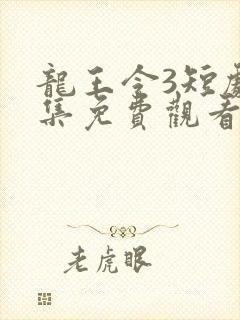 龍王令3短劇
集免費觀看
老虎眼